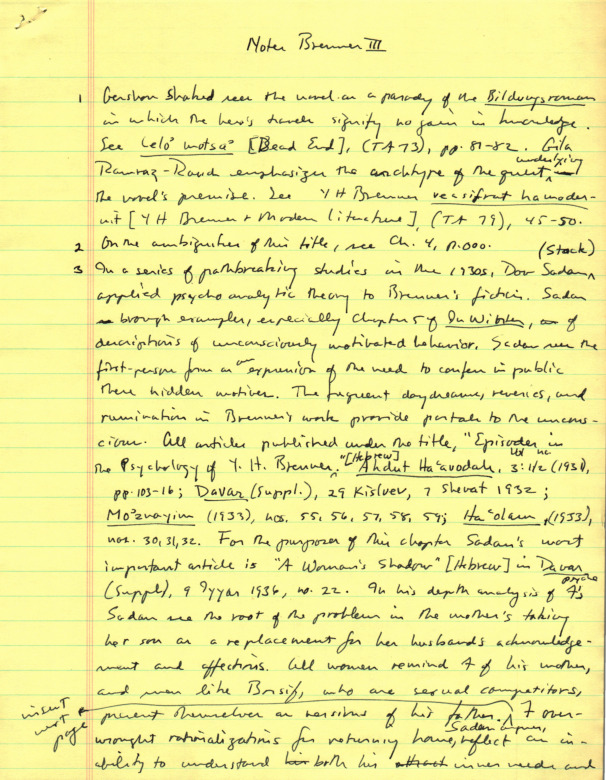 3.
Notes Brenner III
1 Gershon Shaked sees the novel as a parody of the Bildungsroman
in which the hero's travels signify no gain in knowledge.
See Lelo' motsa' [Dead End], (TA 73), pp. 81-82. Gila
Ramraz-Rauch emphasizes the archetype of the quest underlying
the novel's premise. See Y H Brenner vesifrut hamoder-
nit [Y H Brenner & Modern Literature], (TA 79), 45-50.
2 On the ambiguities of this title, see Ch. 4, p.000.
3 In a series of pathbreaking studies in the 1930s, Dov Sadan (Stock)
applied psychoanalytic theory to Brenner's fiction. Sadan
brough examples, especially Chapter 5 of In Winter, of
descriptions of unconsciously motivated behavior. Sadan sees the
first-person form as an expression of the need to confess in public
these hidden motives. The frequent daydreams, reveries, and
rumination in Brenner's work provide portals to the uncons-
cious. All articles published under the title, "Episodes in
the Psychology of Y. H. Brenner." [Hebrew] Ahdut Ha'avodah, vol 3: no 1/2 (1931),
pp. 103-16; Davar (Suppl.), 29 Kislev, 7 Shevat 1932;
Mo'znayim (1933), nos. 55, 56, 57, 58, 59; Ha'olam, (1933),
nos. 30, 31, 32. For the purposes of this chapter Sadan's most
important article is "A Woman's Shadow" [Hebrew] in Davar
(Suppl), 9 Iyyar 1936, no. 22. In his depth analysis of psyche
Sadan sees the root of the problem in the mother's taking
her son as a replacement for her husband's acknowledge-
ment and affections. All women remind of his mother,
and men like Borsif, who are sexual competitors,
insert next page
present themselves as versions of his father. over-
wrought rationalizations for returning home, Sadan argues, reflect an in-
ability to understand both his inner needs and